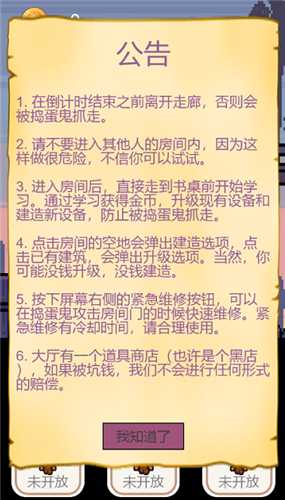 公告
1. 在倒计时结束之前离开走廊，否则会
被捣蛋鬼抓走。
2. 请不要进入其他人的房间内，因为这
样做很危险，不信你可以试试。
3. 进入房间后，直接走到书桌前开始学
习。通过学习获得金币，升级现有设备和
建造新设备，防止被捣蛋鬼抓走。
4. 点击房间的空地会弹出建造选项，点
击已有建筑，会弹出升级选项。当然，你
可能没钱升级，没钱建造。
5. 按下屏幕右侧的紧急维修按钮，可以
在捣蛋鬼攻击房间门的时候快速维修。紧
急维修有冷却时间，请合理使用。
6. 大厅有一个道具商店（也许是个黑店
），如果被坑钱，我们不会进行任何形式
的赔偿。
我知道了
未开放
未开放
未开放